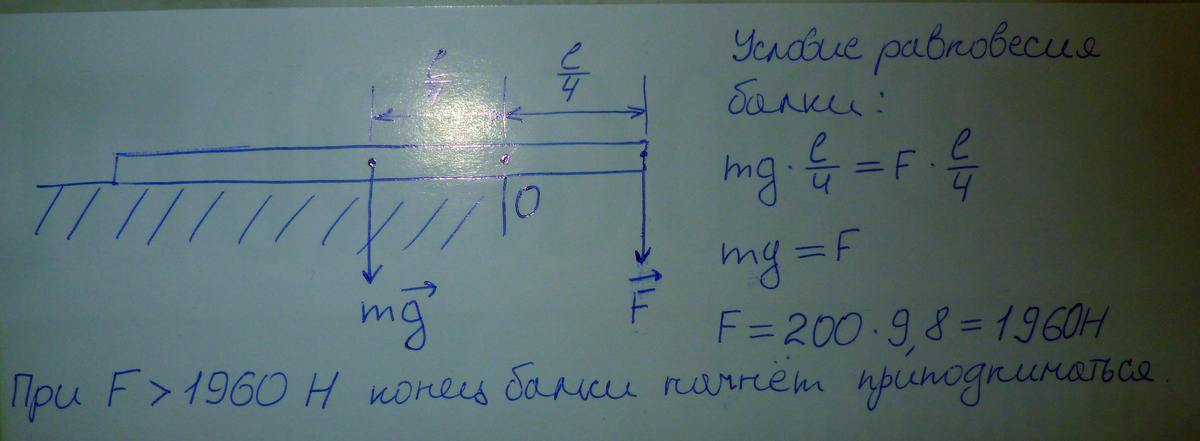 l/4 l/4
O
mg F
Условие равновесия
балки:
mg · l/4 = F · l/4
mg = F
F = 200 · 9,8 = 1960Н
При F > 1960 Н конец балки начнёт приподниматься.